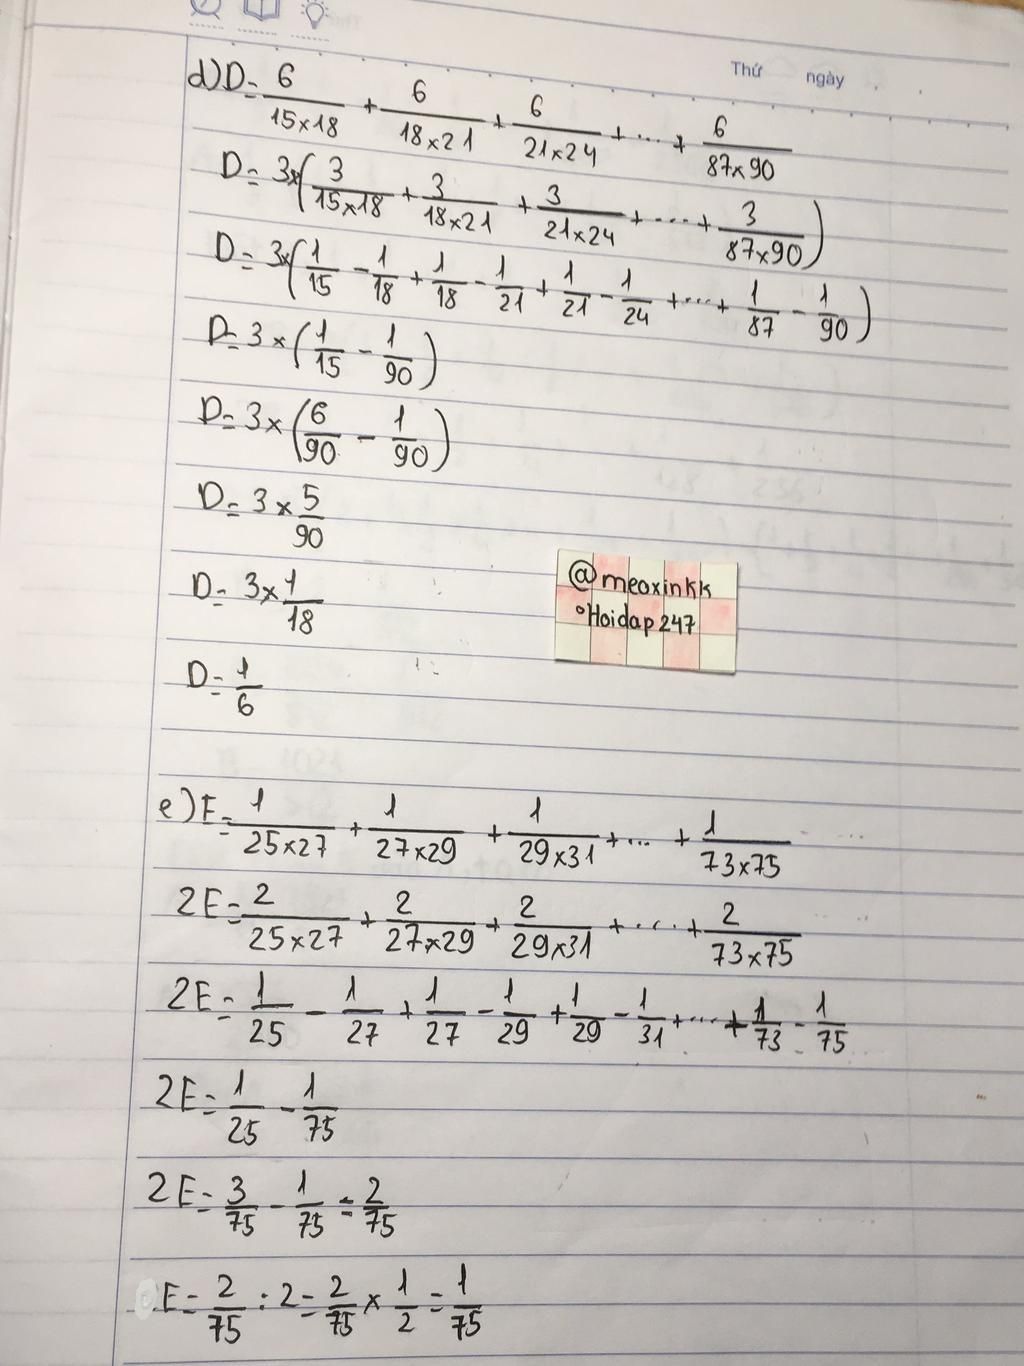 Thứ ngày
d) D = 6/(15×18) + 6/(18×21) + 6/(21×24) + ... + 6/(87×90)
D = 3×(3/(15×18) + 3/(18×21) + 3/(21×24) + .... + 3/(87×90))
D = 3×(1/15 - 1/18 + 1/18 - 1/21 + 1/21 - 1/24 + ... + 1/87 - 1/90)
D = 3×(1/15 - 1/90)
D = 3×(6/90 - 1/90)
D = 3×5/90
D = 3×1/18
D = 1/6
@meoxinkk
°Hoidap247
e) E = 1/(25×27) + 1/(27×29) + 1/(29×31) + ... + 1/(73×75)
2E = 2/(25×27) + 2/(27×29) + 2/(29×31) + .... + 2/(73×75)
2E = 1/25 - 1/27 + 1/27 - 1/29 + 1/29 - 1/31 + ... + 1/73 - 1/75
2E = 1/25 - 1/75
2E = 3/75 - 1/75 = 2/75
E = 2/75 : 2 = 2/75 × 1/2 = 1/75